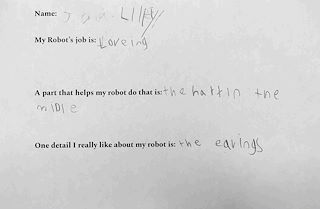 Name: Lilly
My Robot's job is: Loveing
A part that helps my robot do that is: the hart in the
midle
One detail I really like about my robot is: the earings